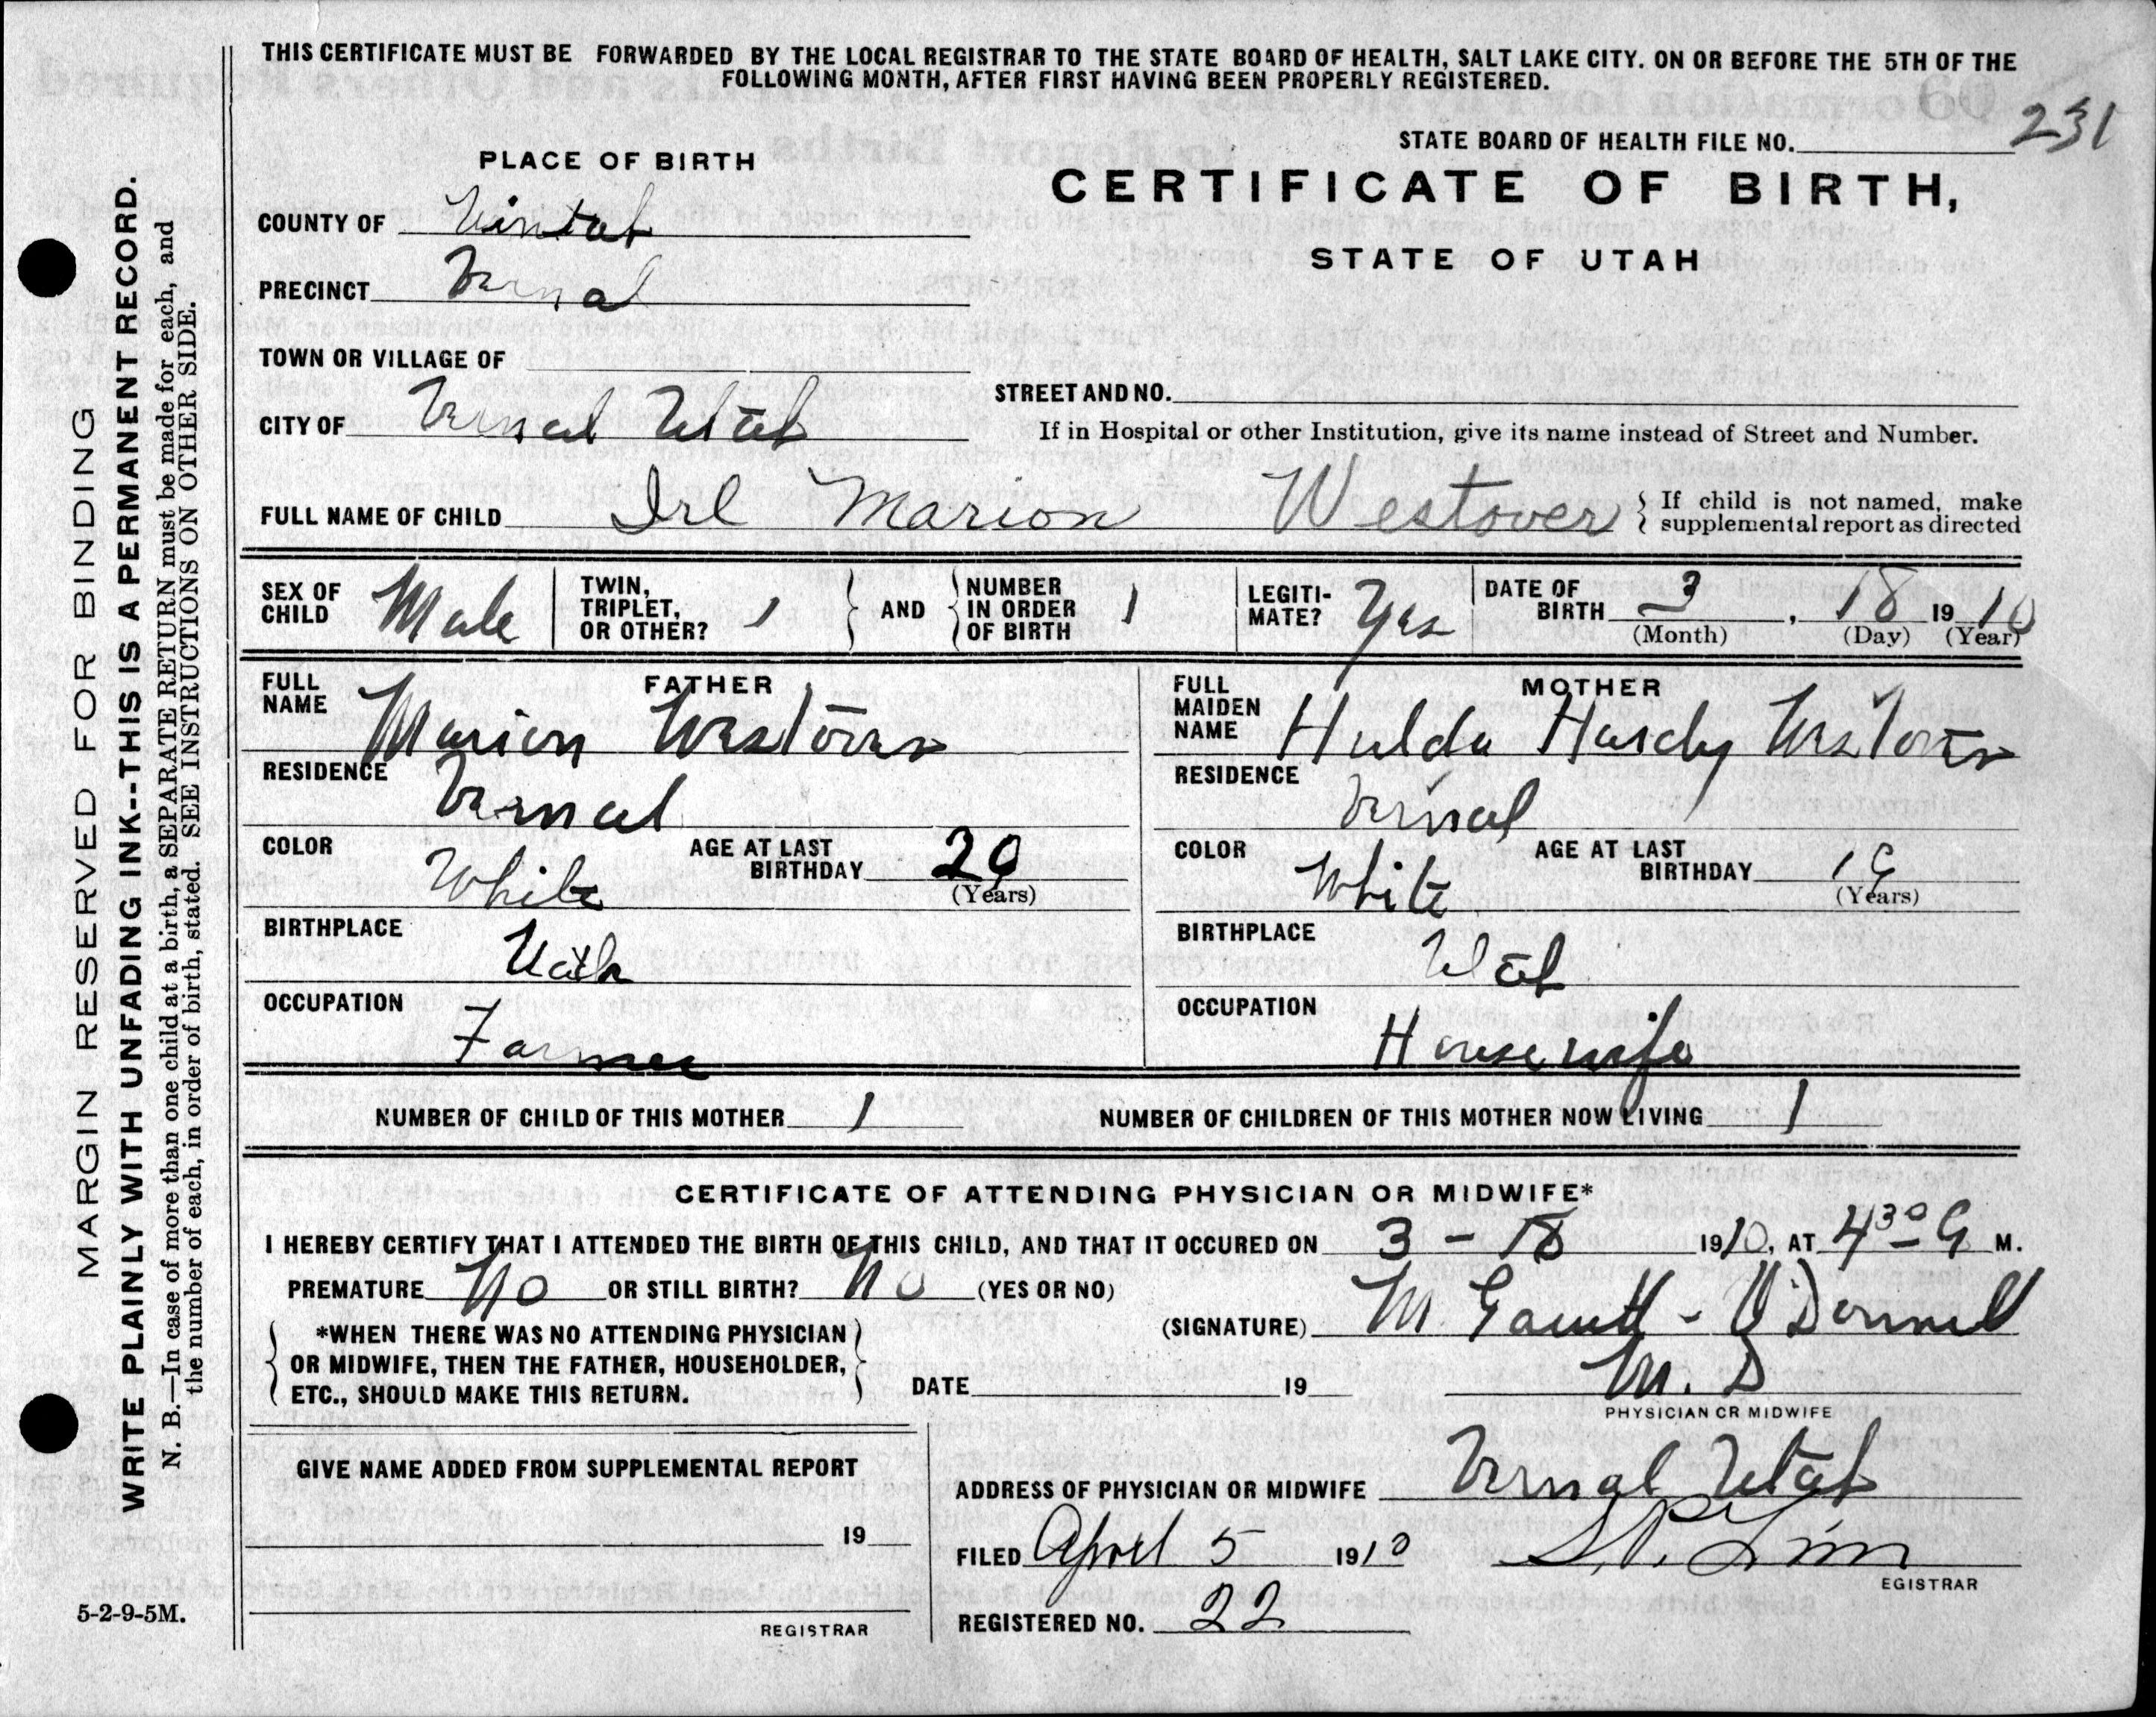 THIS CERTIFICATE MUST BE FORWARDED BY THE LOCAL REGISTRAR TO THE STATE BOARD OF HEALTH, SALT LAKE CITY. ON OR BEFORE THE 5TH OF THE
FOLLOWING MONTH, AFTER FIRST HAVING BEEN PROPERLY REGISTERED.
231
STATE BOARD OF HEALTH FILE NO.
PLACE OF BIRTH
CERTIFICATE OF BIRTH,
STATE OF UTAH
COUNTY OF Uintah
PRECINCT Vernal
TOWN OR VILLAGE OF
STREET AND NO.
CITY OF Vernal Utah
If in Hospital or other Institution, give its name instead of Street and Number.
FULL NAME OF CHILD Irl Marion Westover
If child is not named, make
supplemental report as directed
SEX OF CHILD Male
TWIN, TRIPLET, OR OTHER? 1
AND
NUMBER IN ORDER OF BIRTH 1
LEGITI-MATE? Yes
DATE OF BIRTH 3, 18 1910
(Month) (Day) (Year)
FATHER
FULL NAME Marion Westover
RESIDENCE Vernal
COLOR White
AGE AT LAST BIRTHDAY 20
(Years)
BIRTHPLACE Utah
OCCUPATION Farmer
MOTHER
FULL MAIDEN NAME Hulda Hardy Westover
RESIDENCE Vernal
COLOR White
AGE AT LAST BIRTHDAY 19
(Years)
BIRTHPLACE Utah
OCCUPATION Housewife
NUMBER OF CHILD OF THIS MOTHER 1
NUMBER OF CHILDREN OF THIS MOTHER NOW LIVING 1
CERTIFICATE OF ATTENDING PHYSICIAN OR MIDWIFE*
I HEREBY CERTIFY THAT I ATTENDED THE BIRTH OF THIS CHILD, AND THAT IT OCCURED ON 3 - 18 1910, AT 4 30 a M.
PREMATURE No OR STILL BIRTH? No (YES OR NO)
(SIGNATURE) M. - O'Donnell
M. D
PHYSICIAN OR MIDWIFE
*WHEN THERE WAS NO ATTENDING PHYSICIAN
OR MIDWIFE, THEN THE FATHER, HOUSEHOLDER,
ETC., SHOULD MAKE THIS RETURN.
DATE 19
GIVE NAME ADDED FROM SUPPLEMENTAL REPORT
19
REGISTRAR
ADDRESS OF PHYSICIAN OR MIDWIFE Vernal Utah
FILED April 5 1910
EGISTRAR
REGISTERED NO. 22
5-2-9-5M.
MARGIN RESERVED FOR BINDING
WRITE PLAINLY WITH UNFADING INK--THIS IS A PERMANENT RECORD.
N. B.—In case of more than one child at a birth, a SEPARATE RETURN must be made for each, and
the number of each, in order of birth, stated. SEE INSTRUCTIONS ON OTHER SIDE.